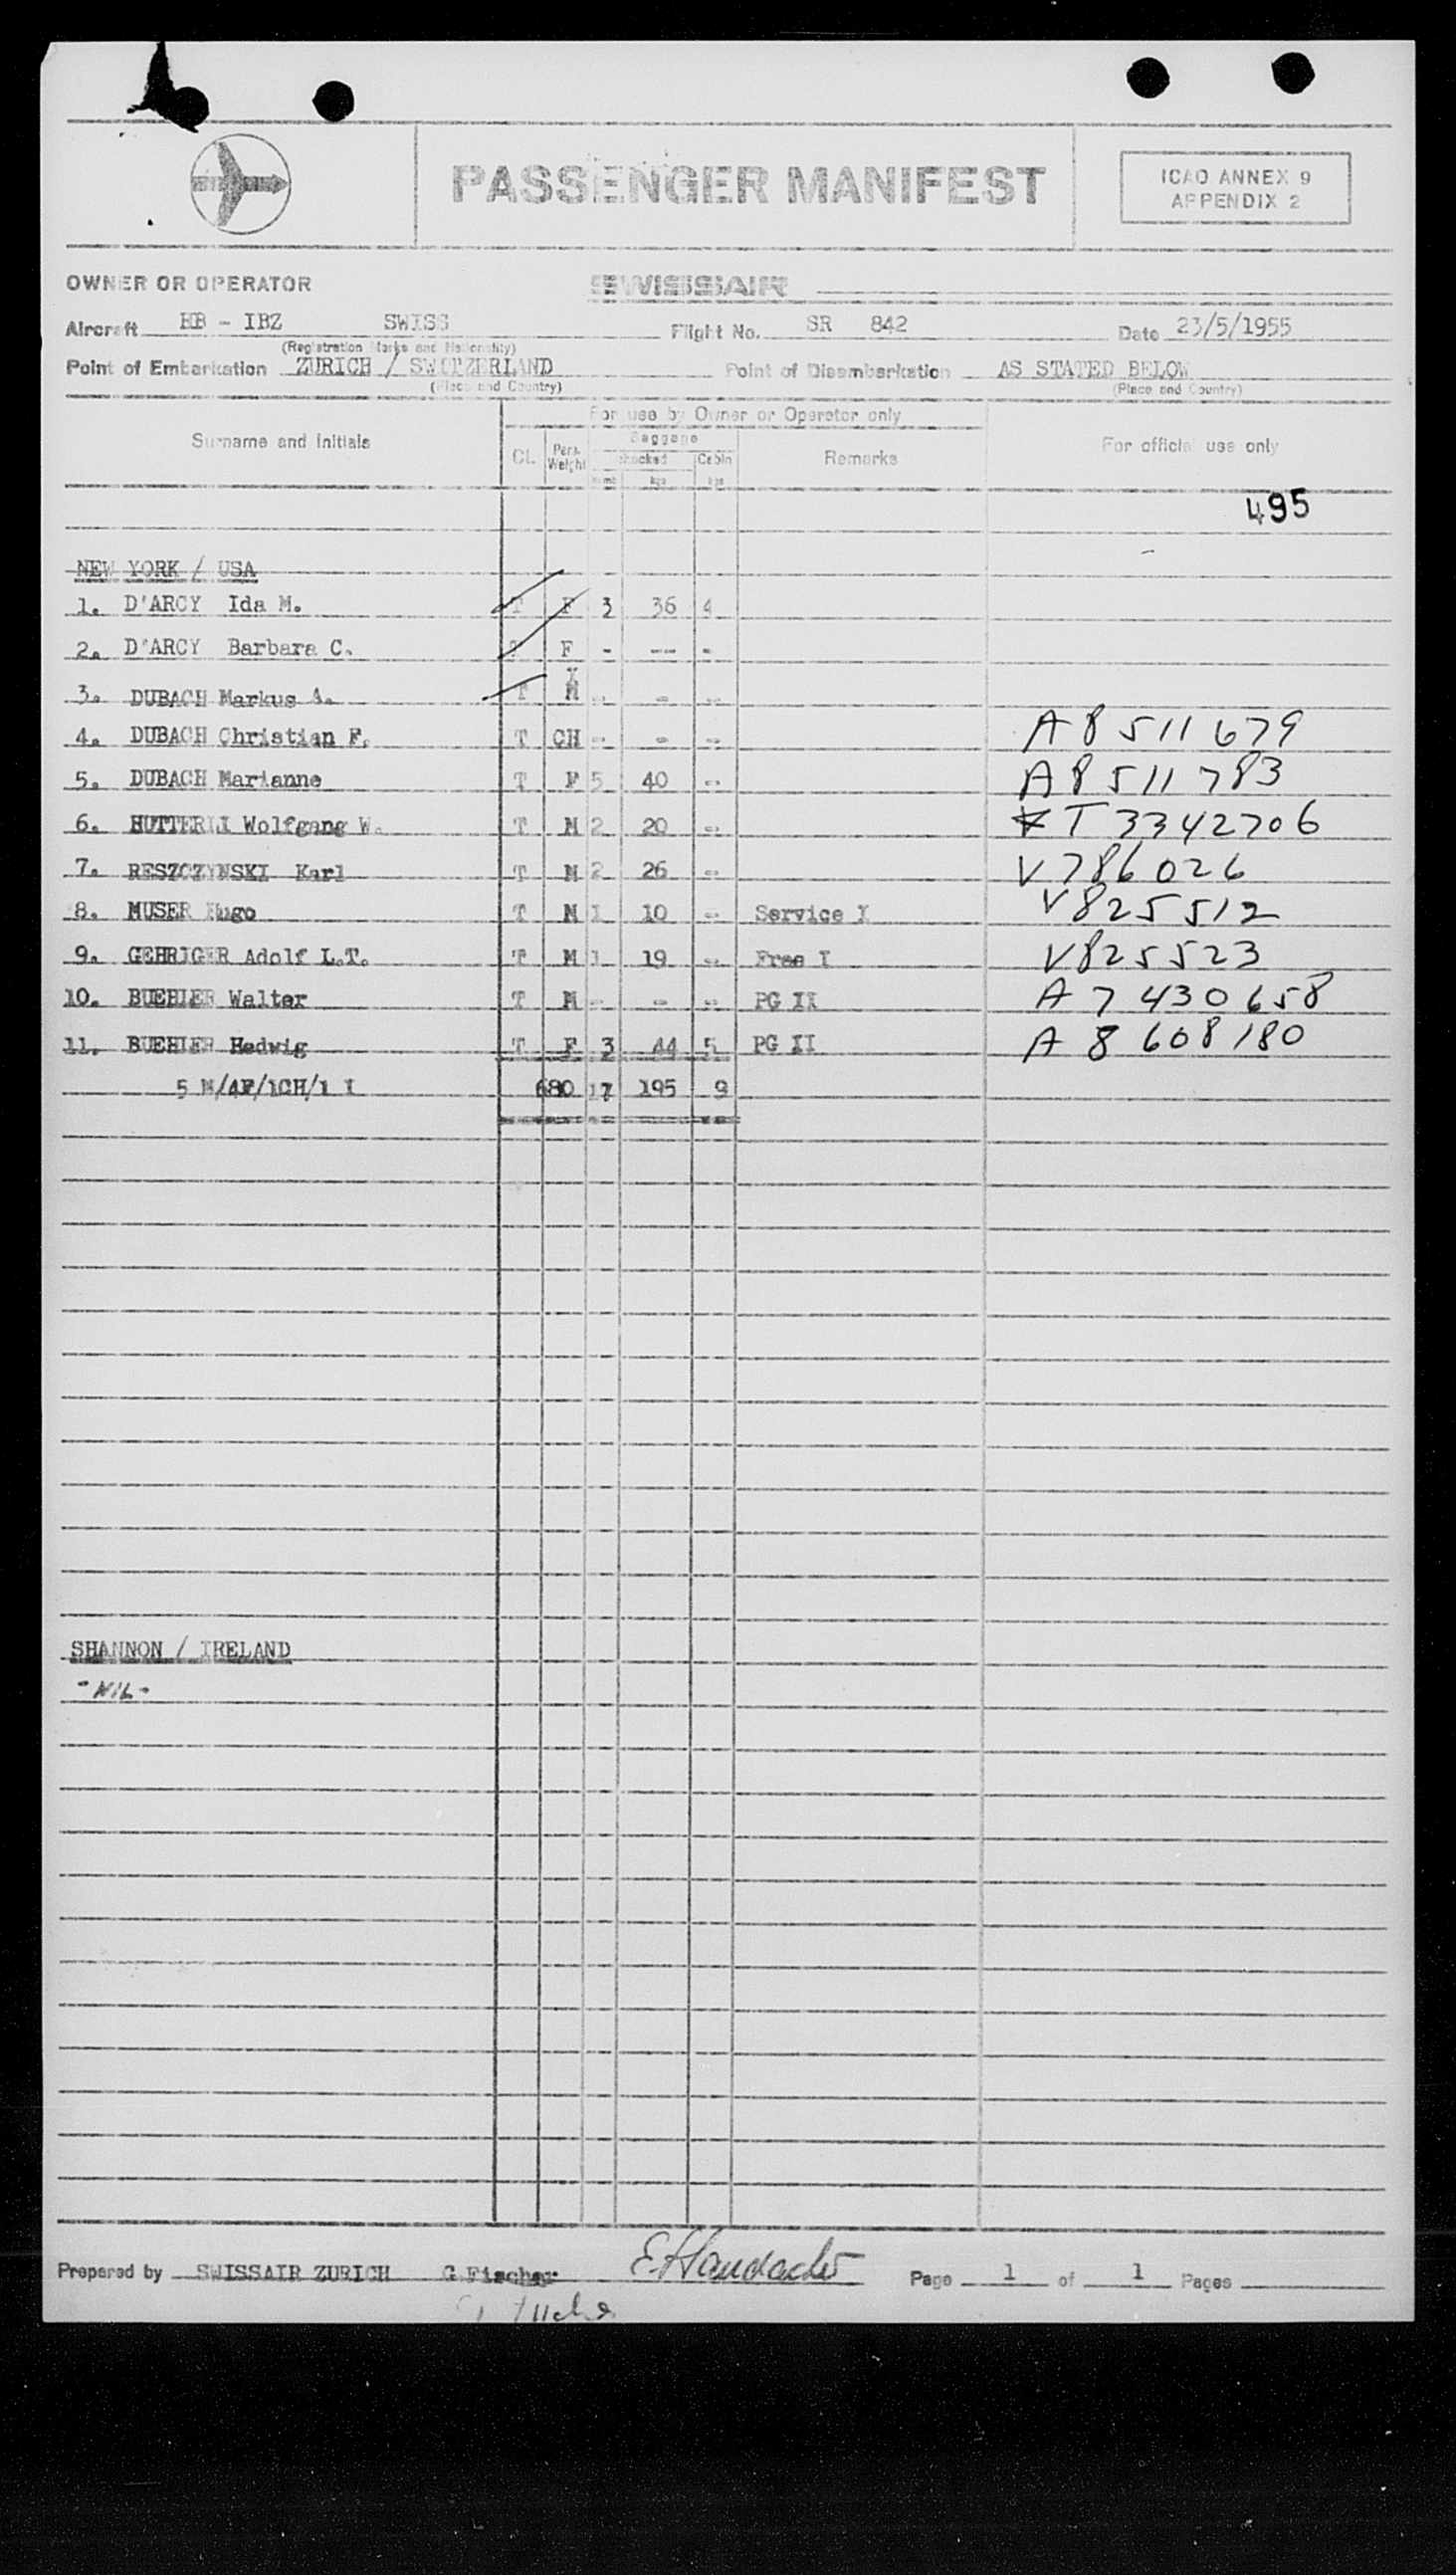 PASSENGER MANIFEST
ICAO ANNEX 9
APPENDIX 2
OWNER OR OPERATOR SWISSAIR
Aircraft HB - IBZ SWISS Flight No. SR 842 Date 23/5/1955
(Registration Marks and Nationality)
Point of Embarkation ZURICH / SWITZERLAND Point of Disembarkation AS STATED BELOW
(Place and Country) (Place and Country)
For use by Owner or Operator only
Surname and Initials CL. Pass. Weight Baggage Checked Cabin Remarks For official use only
numb kgs kgs
495
NEW YORK / USA
1. D'ARCY Ida M. T F 3 36 4
2. D'ARCY Barbara C. T F - -- -
I
3. DUBACH Markus A. T M - - -
4. DUBACH Christian F. T CH - - - A8511679
5. DUBACH Marianne T F 5 40 - A8511783
6. HUTTERLI Wolfgang W. T M 2 20 - T3342706
7. RESZCZYNSKI Karl T M 2 26 - V786026
8. MUSER Hugo T M 1 10 - Service I V825512
9. GEHRIGER Adolf L.T. T M 1 19 - Free I V825523
10. BUEHLER Walter T M - - - PG II A7430658
11. BUEHLER Hedwig T F 3 44 5 PG II A8608180
5 M/4F/1CH/1 I 680 17 195 9
SHANNON / IRELAND
-NIL-
Prepared by SWISSAIR ZURICH G.Fischer Page 1 of 1 Pages